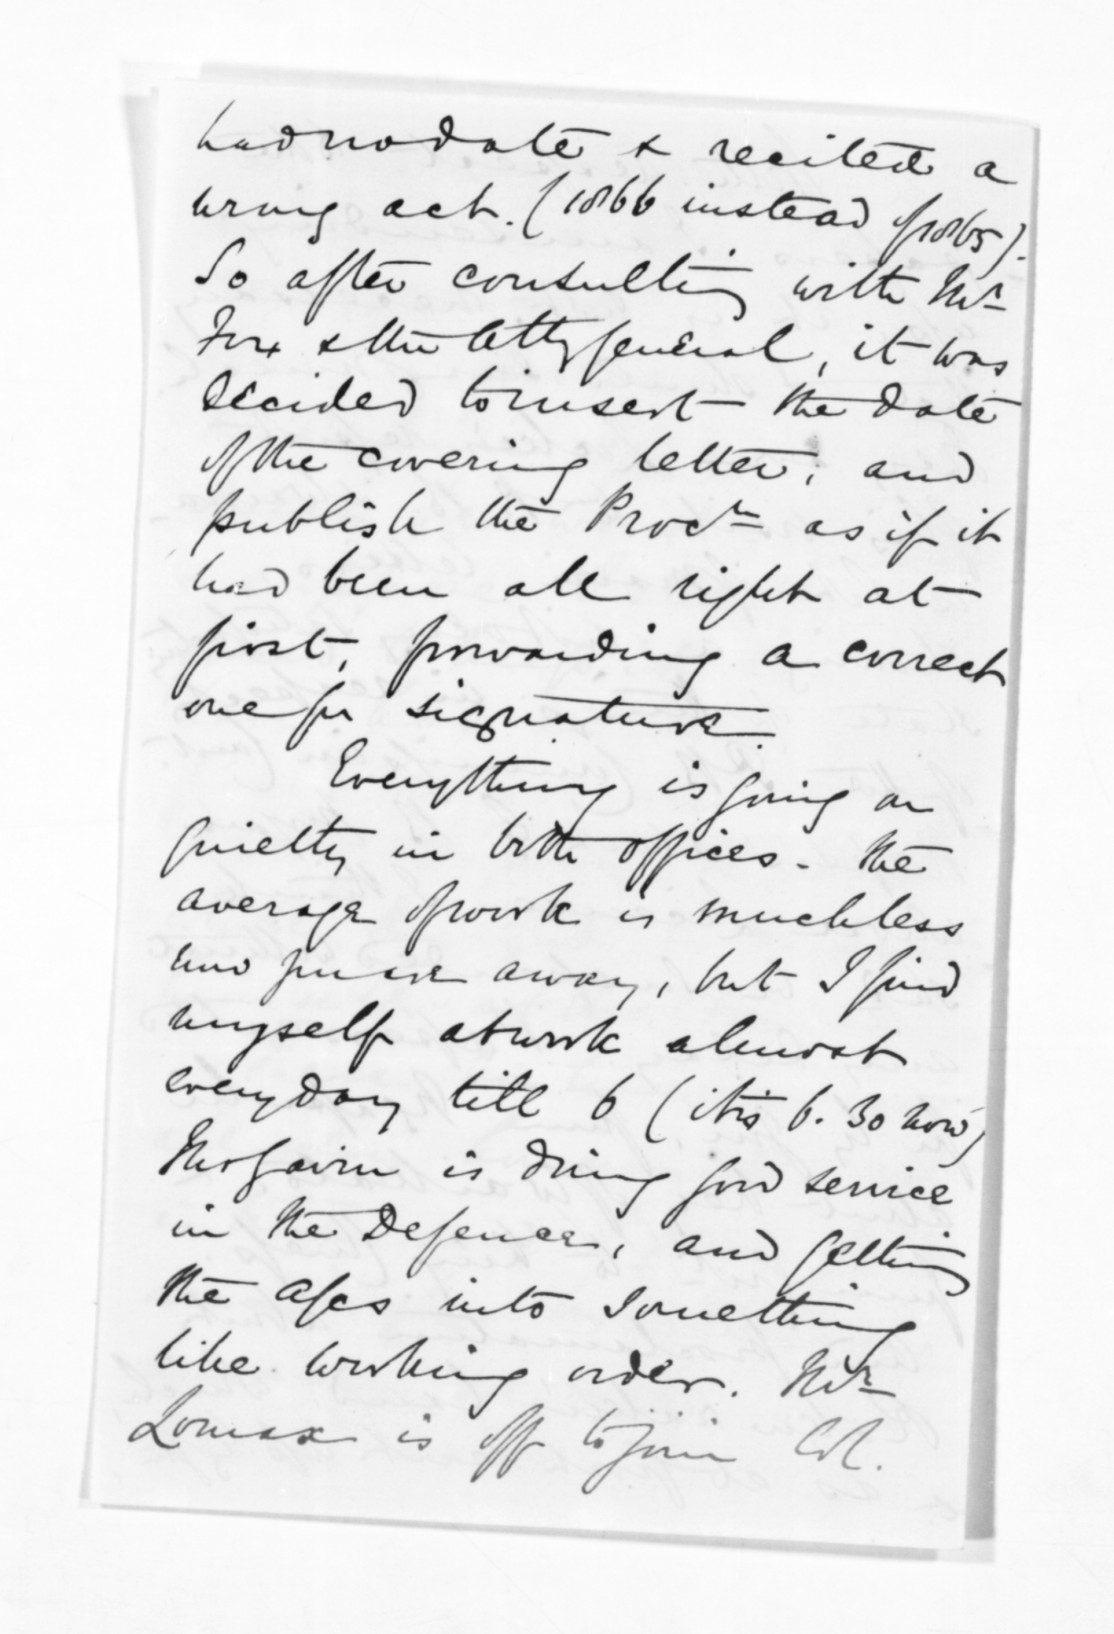 had no date & recited a
wrong act. (1866 instead of 1865).
So after consulting with Mr
Fox & the Atty General, it was
decided to insert the date
of the covering letter, and
publish the Procln as if it
had been all right at
first, forwarding a correct
one for signature.
Everything is going on
quietly in both offices. The
average of work is much less
now you are away, but I find
myself at work almost
every day till 6 (it is 6.30 now)
is doing good service
in the Defence, and getting
the a/cs into something
like working order. Mr
Lomax is off to join Col.